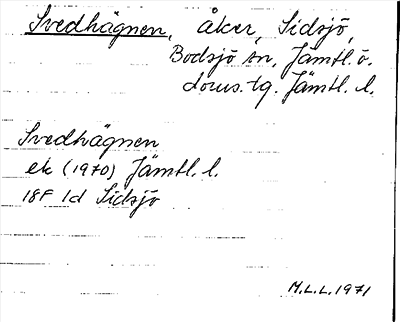 Svedhägnen, åker, Sidsjö,
Bodsjö sn, Jämtl. ö.
doms. tg. Jämtl. l.
Svedhägnen
ek (1970) Jämtl. l.
18F 1d Sidsjö
M.L.L. 1971